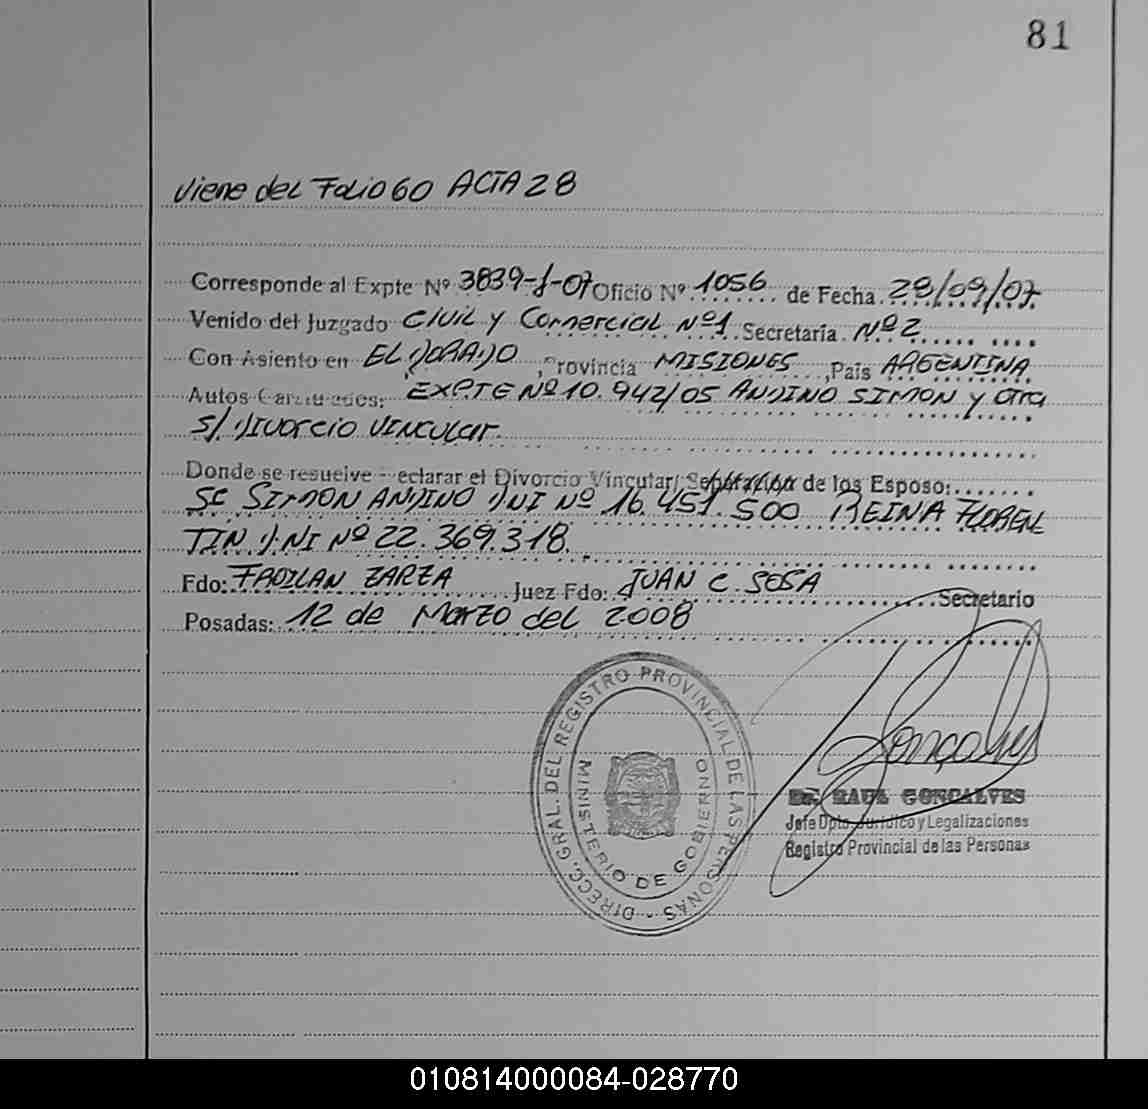 81
Viene del Folio 60 ACTA 28
Corresponde al Expte Nº 3839-J-07 Oficio Nº 1056 de Fecha 28/09/07
Venido del Juzgado Civil y Comercial Nº1 Secretaría Nº 2
Con Asiento en ELDORADO, Provincia MISIONES, País ARGENTINA
Autos Caratulados: EXPTE Nº 10.942/05 ANDINO SIMON y otra
S/ Divorcio Vincular.
Donde se resuelve declarar el Divorcio Vincular/ Separación de los Esposo:
Sr SIMON ANDINO DNI Nº 16.451.500 REINA FLOREN
TIN D.NI Nº 22.369.318.
Fdo: FROILAN ZARZA Juez Fdo: JUAN C. SOSA Secretario
Posadas: 12 de Marzo del 2008
DIRECC. GRAL. DEL REGISTRO PROVINCIAL DE LAS PERSONAS -
MINISTERIO DE GOBIERNO
Gonçalves
Dr. RAUL GONCALVES
Jefe Dpto. Jurídico y Legalizaciones
Registro Provincial de las Personas
010814000084-028770